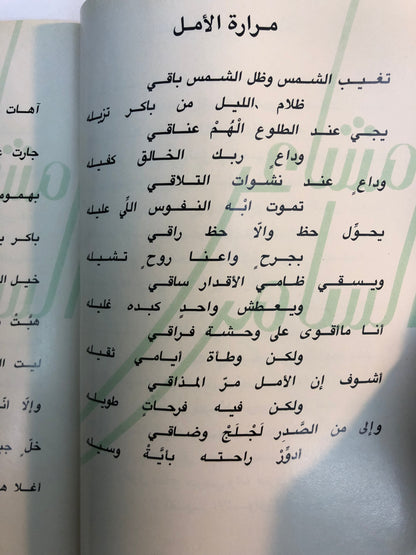 مرارة الأمل
تغيب الشمس وظل الشمس باقي
ظلام الليل من باكر تزيله
يجي عند الطلوع الْهُمْ عناقي
وداعٍ ربك الخالق كفيله
وداعٍ عند نشوات التلاقي
تموت ابْه النفوس اللِّي عليله
يحوِّل حظ والاّ حظ راقي
بجرحٍ واعنا روحٍ تشيله
ويسقي ظامي الأقدار ساقي
ويعطش واحدٍ كبده غليله
أنا مااقوى على وحشة فراقي
ولكن وطاة أيامي ثقيله
أشوف إن الأمل مرّ المذاقي
ولكن فيه فرحاتٍ طويله
وإلى من الصَّدر لَجْلَجْ وضاقي
أدوِّرْ راحته بايَّةْ وسيله
آهات
جارت
بهمومه
باكر
خيل
هبَّت
ليت
وإلاّ
خلّ
اغلا
مشاعر
الساهر